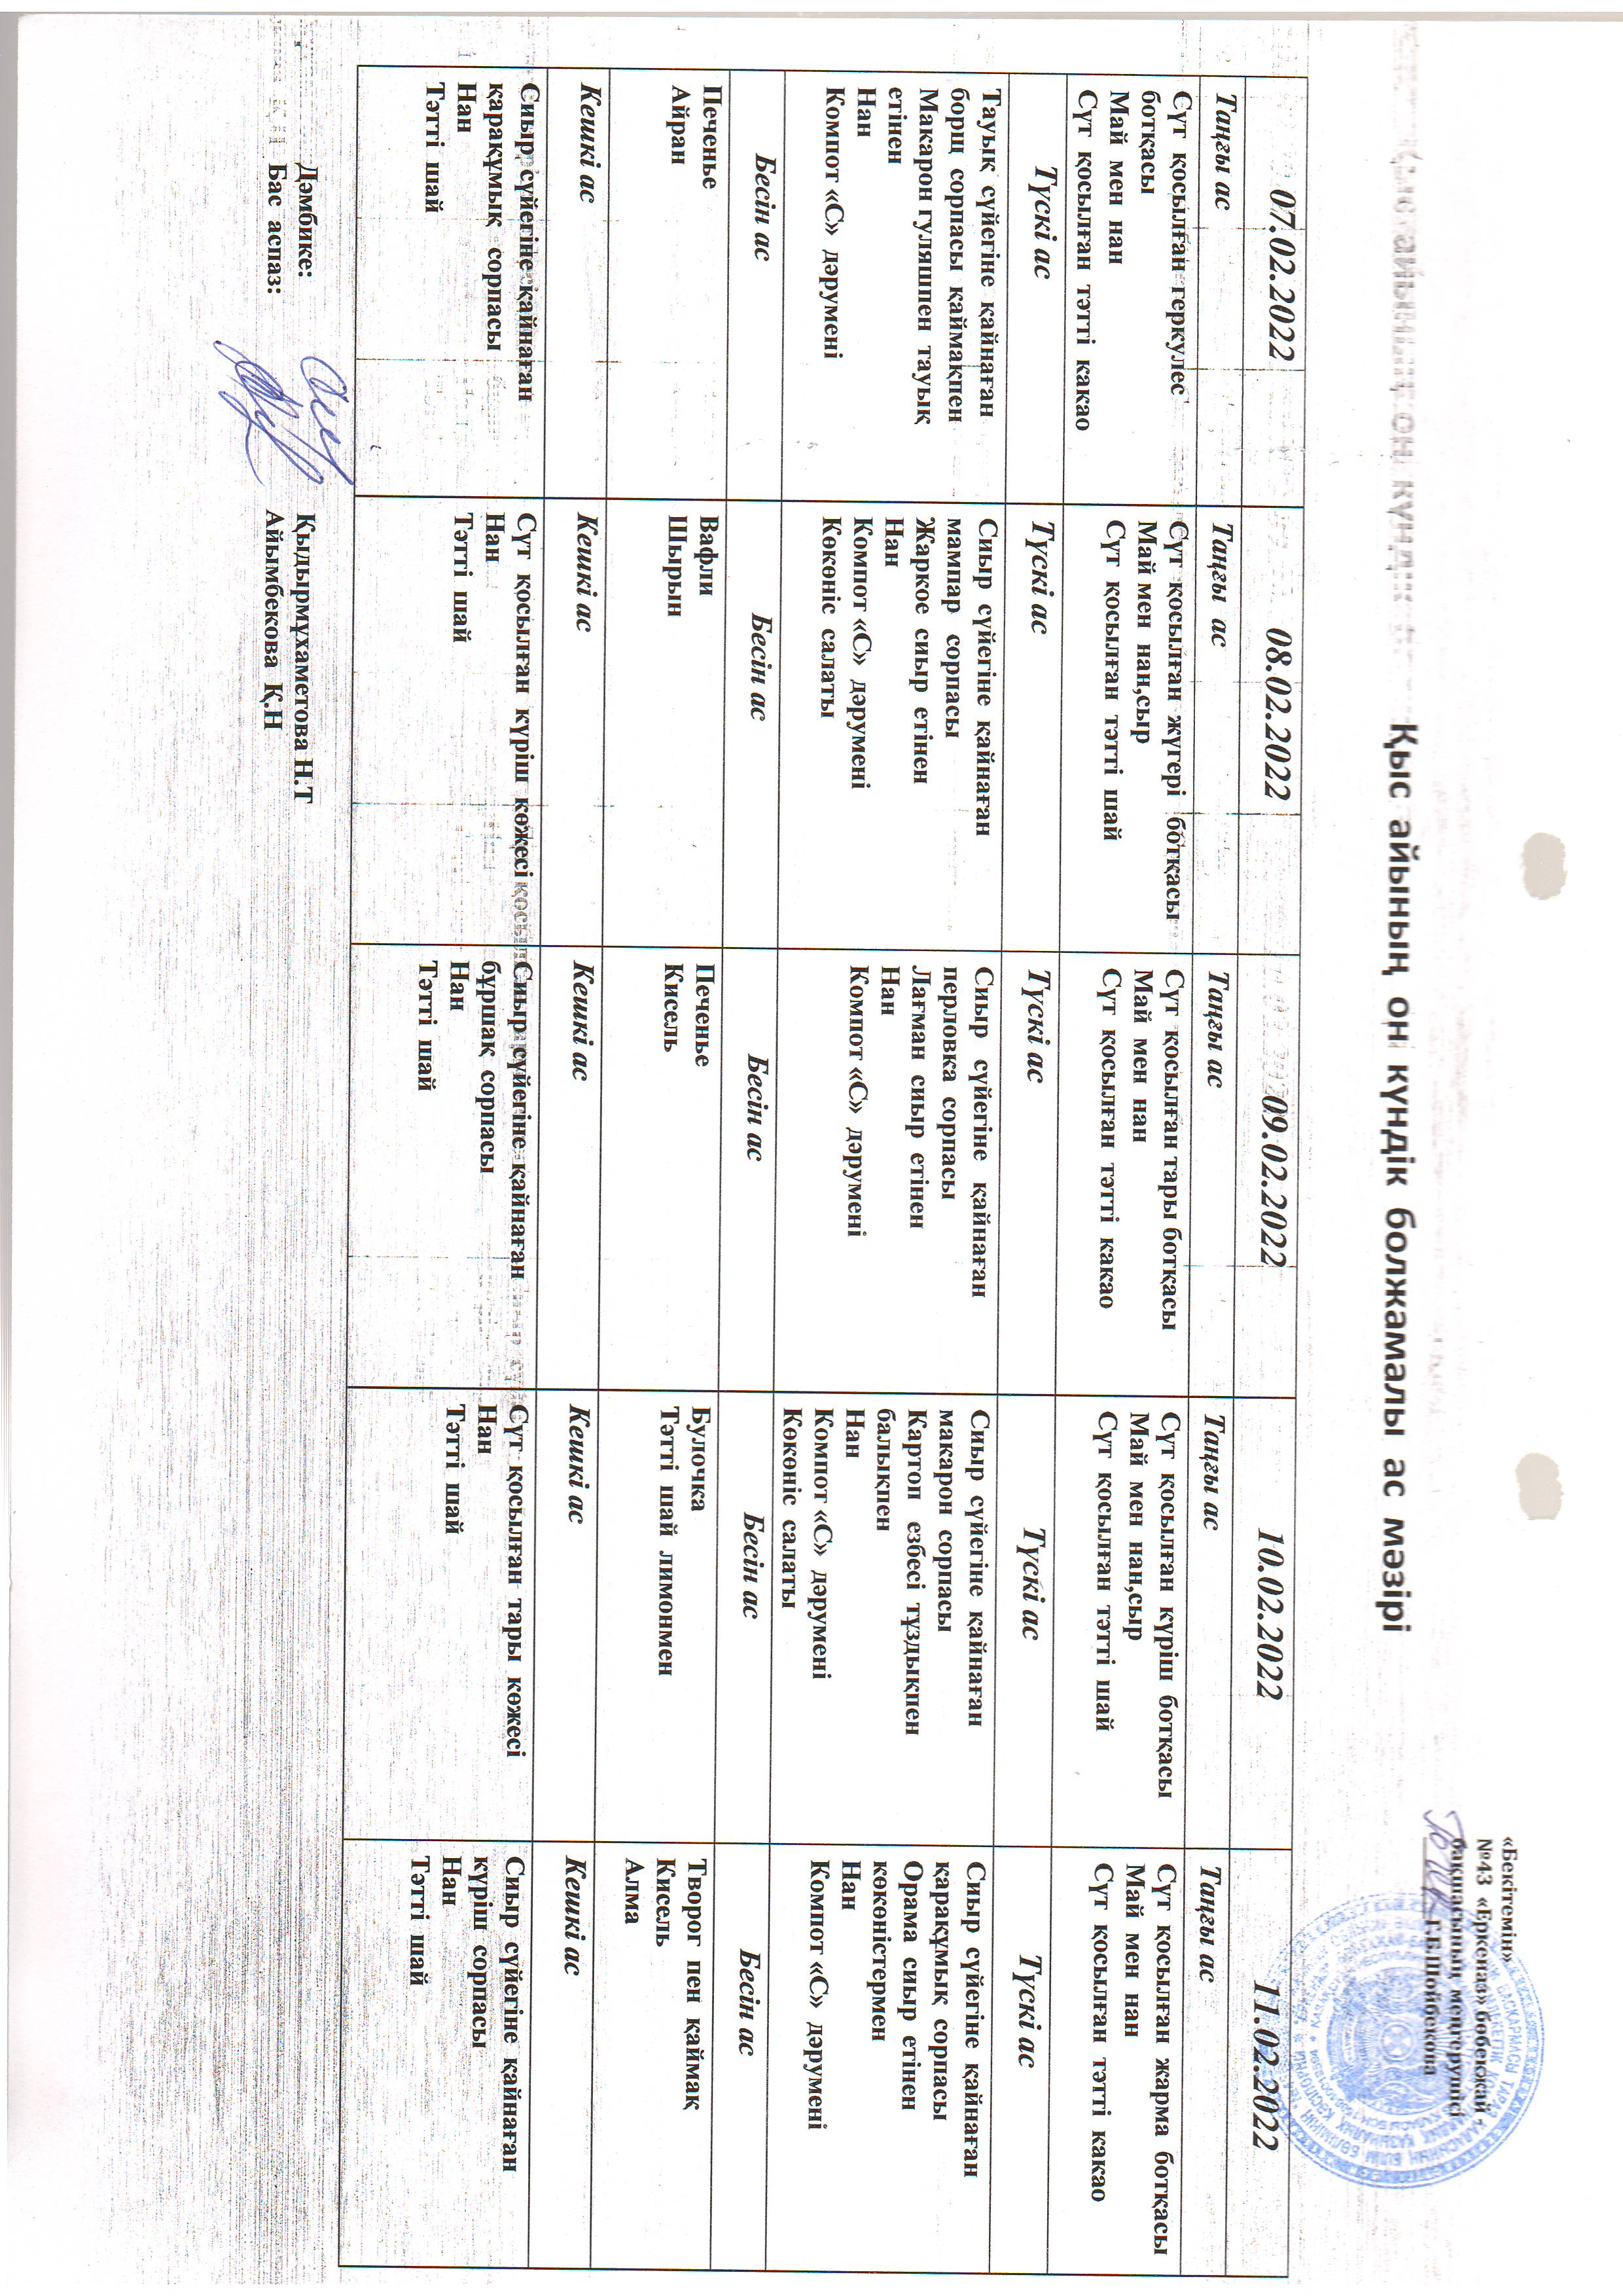 «Бекітемін»
№43 «Еркеназ» бөбекжай -
бақшасының меңгерушісі
Г.Б.Шойбекова
Қыс айының он күндік болжамалы ас мәзірі
07.02.2022
Таңғы ас
Сүт қосылған геркулес
ботқасы
Май мен нан
Сүт қосылған тәтті какао
Түскі ас
Тауық сүйегіне қайнаған
борщ сорпасы қаймақпен
Макарон гуляшпен тауық
етінен
Нан
Компот «С» дәрумені
Бесін ас
Печенье
Айран
Кешкі ас
Сиыр сүйегіне қайнаған
қарақұмық сорпасы
Нан
Тәтті шай
08.02.2022
Таңғы ас
Сүт қосылған жүгері ботқасы
Май мен нан,сыр
Сүт қосылған тәтті шай
Түскі ас
Сиыр сүйегіне қайнаған
мампар сорпасы
Жаркое сиыр етінен
Нан
Компот «С» дәрумені
Көкөніс салаты
Бесін ас
Вафли
Шырын
Кешкі ас
Сүт қосылған күріш көжесі
Нан
Тәтті шай
09.02.2022
Таңғы ас
Сүт қосылған тары ботқасы
Май мен нан
Сүт қосылған тәтті какао
Түскі ас
Сиыр сүйегіне қайнаған
перловка сорпасы
Лағман сиыр етінен
Нан
Компот «С» дәрумені
Бесін ас
Печенье
Кисель
Кешкі ас
Сиыр сүйегіне қайнаған
бұршақ сорпасы
Нан
Тәтті шай
10.02.2022
Таңғы ас
Сүт қосылған күріш ботқасы
Май мен нан,сыр
Сүт қосылған тәтті шай
Түскі ас
Сиыр сүйегіне қайнаған
макарон сорпасы
Картоп езбесі тұздықпен
балықпен
Нан
Компот «С» дәрумені
Көкөніс салаты
Бесін ас
Булочка
Тәтті шай лимонмен
Кешкі ас
Сүт қосылған тары көжесі
Нан
Тәтті шай
11.02.2022
Таңғы ас
Сүт қосылған жарма ботқасы
Май мен нан
Сүт қосылған тәтті какао
Түскі ас
Сиыр сүйегіне қайнаған
қарақұмық сорпасы
Орама сиыр етінен
көкөністермен
Нан
Компот «С» дәрумені
Бесін ас
Творог пен қаймақ
Кисель
Алма
Кешкі ас
Сиыр сүйегіне қайнаған
күріш сорпасы
Нан
Тәтті шай
Дәмбике: Қыдырмұхаметова Н.Т
Бас аспаз: Айымбекова Қ.Н